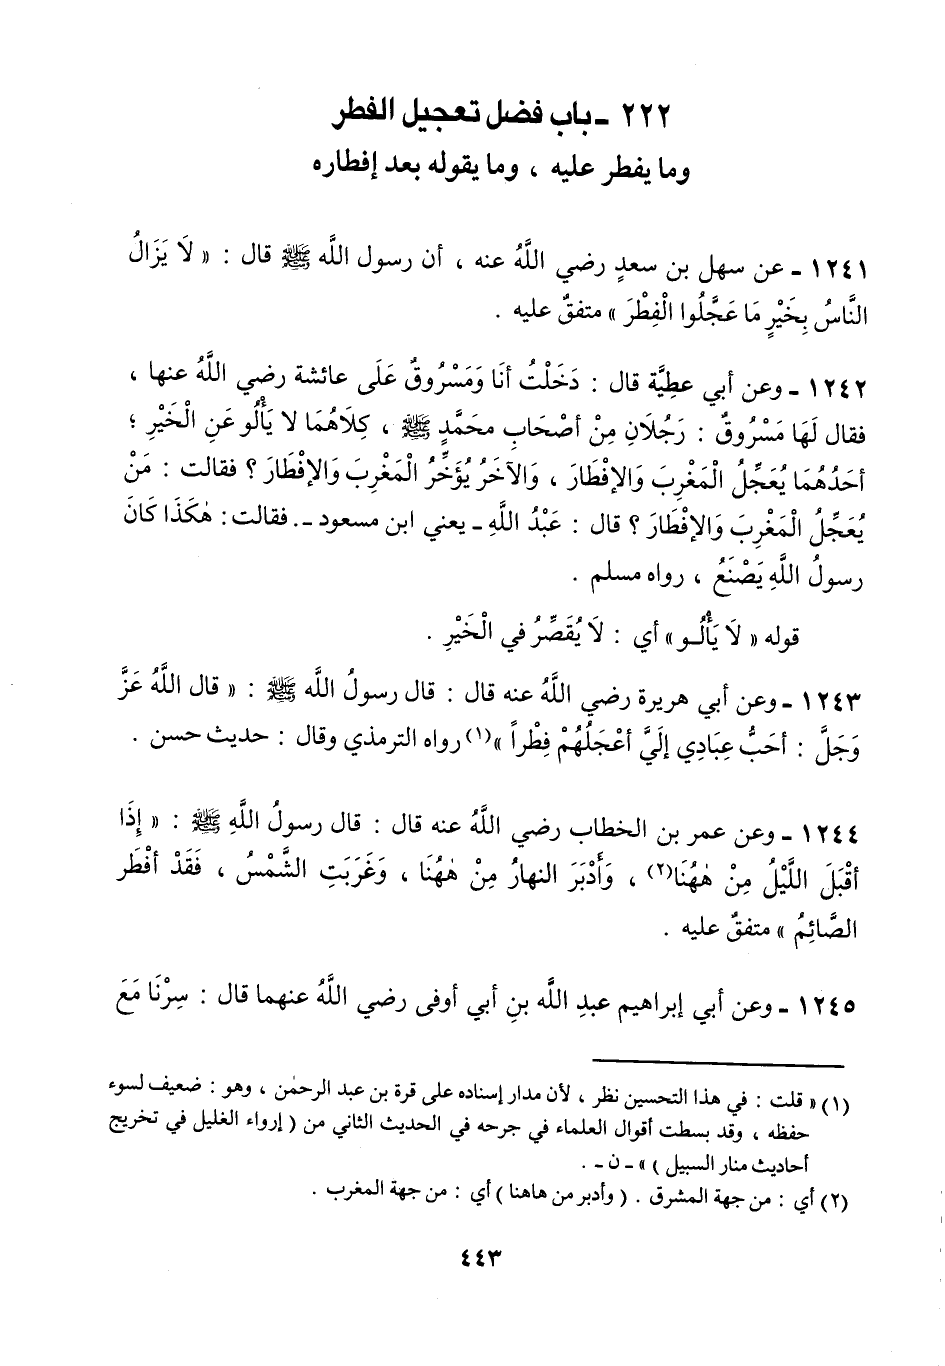 ٢٢٢ ـ باب فضل تعجيل الفطر
وما يفطر عليه ، وما يقوله بعد إفطاره
١٢٤١ ـ عن سهل بن سعدٍ رضي اللَّهُ عنه ، أن رسول اللَّه ﷺ قال : « لَا يَزَالُ
النَّاسُ بِخَيْرٍ مَا عَجَّلُوا الْفِطْرَ » متفقٌ عليه .
١٢٤٢ ـ وعن أبي عطِيَّة قال : دَخَلْتُ أنَا وَمَسْرُوقٌ عَلَى عائشة رضي اللَّهُ عنها ،
فقال لَهَا مَسْرُوقٌ : رَجُلَانِ مِنْ أصْحَابِ محَمَّدٍ ﷺ ، كِلَاهُمَا لا يَأْلُو عَنِ الْخَيْرِ ؛
أحَدُهُمَا يُعَجِّلُ الْمَغْرِبَ وَالإفْطَارَ ، وَالآخَرُ يُؤَخِّرُ الْمَغْرِبَ وَالإفْطَارَ ؟ فقالت : مَنْ
يُعَجِّلُ الْمَغْرِبَ وَالإفْطَارَ ؟ قال : عَبْدُ اللَّهِ ـ يعني ابن مسعود ـ . فقالت : هٰكَذَا كَانَ
رسولُ اللَّهِ يَصْنَعُ ، رواه مسلم .
قوله « لَا يَأْلُـو » أي : لَا يُقَصِّرُ في الْخَيْرِ .
١٢٤٣ ـ وعن أبي هريرة رضي اللَّهُ عنه قال : قال رسولُ اللَّه ﷺ : « قال اللَّهُ عَزَّ
وَجَلَّ : أحَبُّ عِبَادِي إلَيَّ أعْجَلُهُمْ فِطْراً »(١) رواه الترمذي وقال : حديث حسن .
١٢٤٤ ـ وعن عمر بن الخطاب رضي اللَّهُ عنه قال : قال رسولُ اللَّهِ ﷺ : « إذَا
أقْبَلَ اللَّيْلُ مِنْ هٰهُنَا(٢) ، وَأَدْبَرَ النهارُ مِنْ هٰهُنَا ، وَغَرَبَتِ الشَّمْسُ ، فَقَدْ أفْطَر
الصَّائِمُ » متفقٌ عليه .
١٢٤٥ ـ وعن أبي إبراهيم عبدِ اللَّه بنِ أبي أوفى رضي اللَّهُ عنهما قال : سِرْنَا مَعَ
(١) « قلت : في هذا التحسين نظر ، لأن مدار إسناده على قرة بن عبد الرحمٰن ، وهو : ضعيف لسوء
حفظه ، وقد بسطت أقوال العلماء في جرحه في الحديث الثاني من ( إرواء الغليل في تخريج
أحاديث منار السبيل ) » ـ ن ـ .
(٢) أي : من جهة المشرق . ( وأدبر من هاهنا ) أي : من جهة المغرب .
٤٤٣